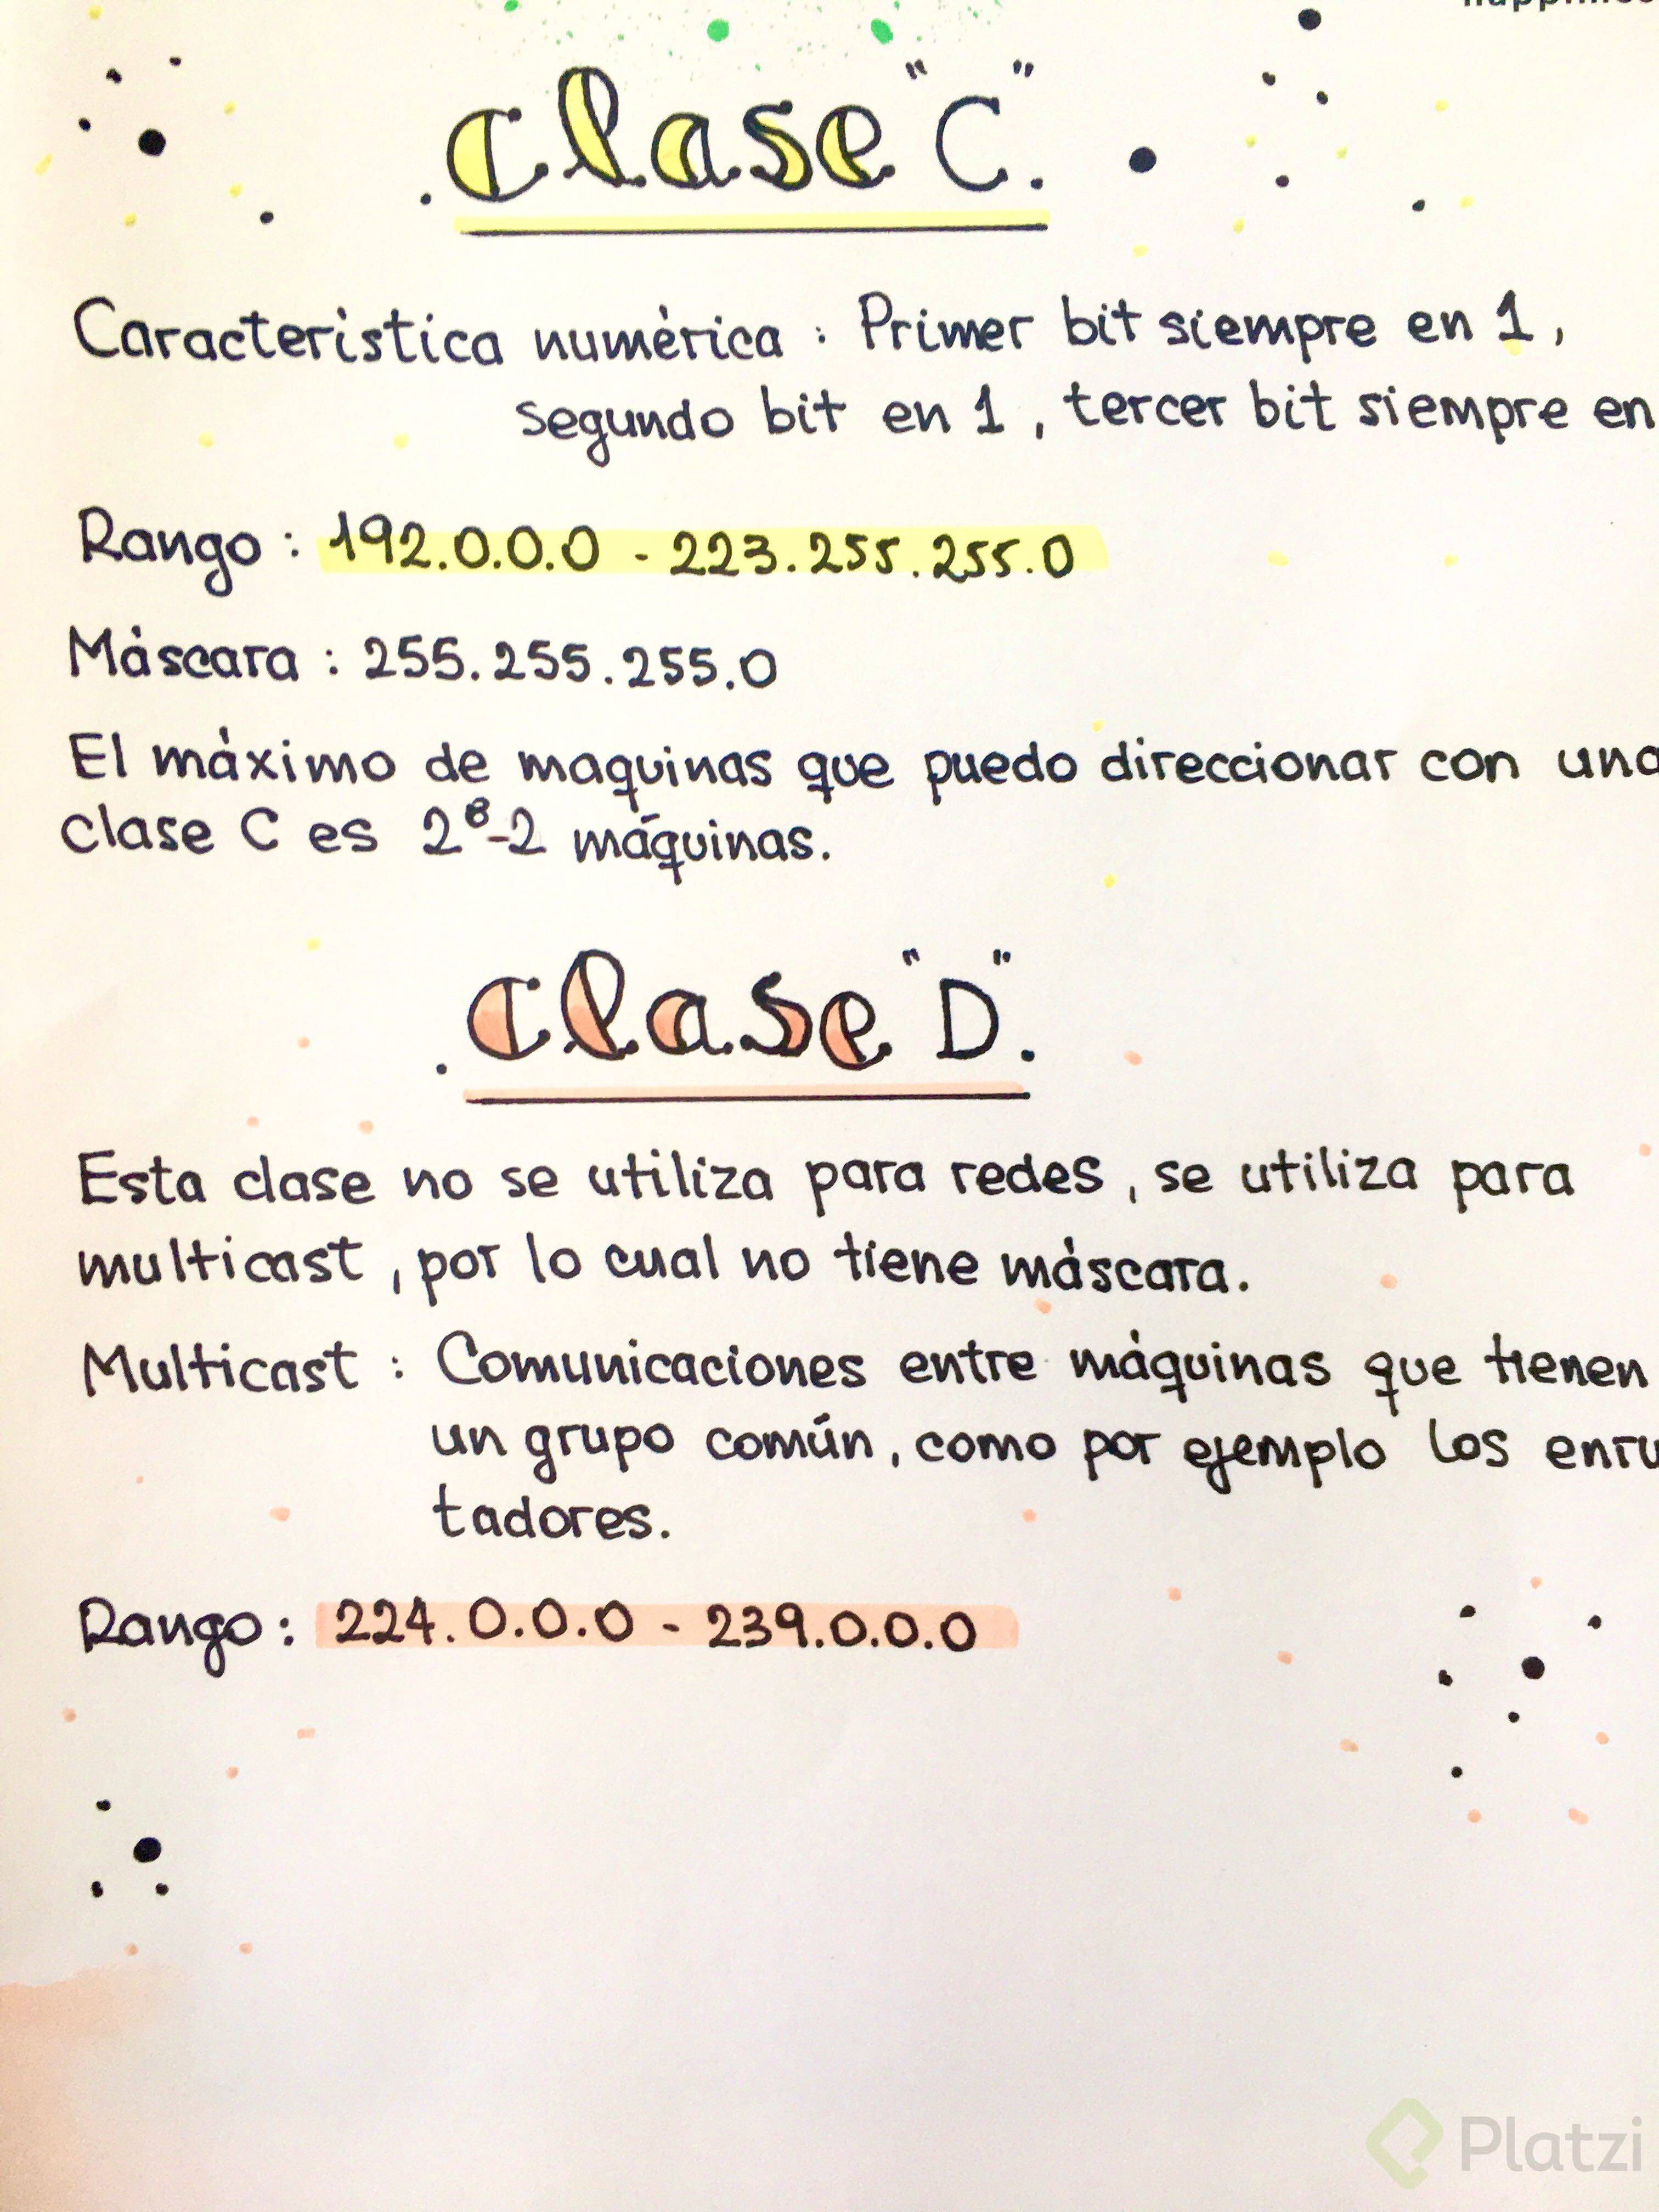 Clase "C".
Caracteristica numérica : Primer bit siempre en 1,
segundo bit en 1, tercer bit siempre en
Rango : 192.0.0.0 - 223.255.255.0
Máscara : 255.255.255.0
El máximo de maquinas que puedo direccionar con una
clase C es 2⁸-2 máquinas.
Clase "D".
Esta clase no se utiliza para redes, se utiliza para
multicast, por lo cual no tiene máscara.
Multicast : Comunicaciones entre máquinas que tienen
un grupo común, como por ejemplo los enru
tadores.
Rango : 224.0.0.0 - 239.0.0.0
Platzi